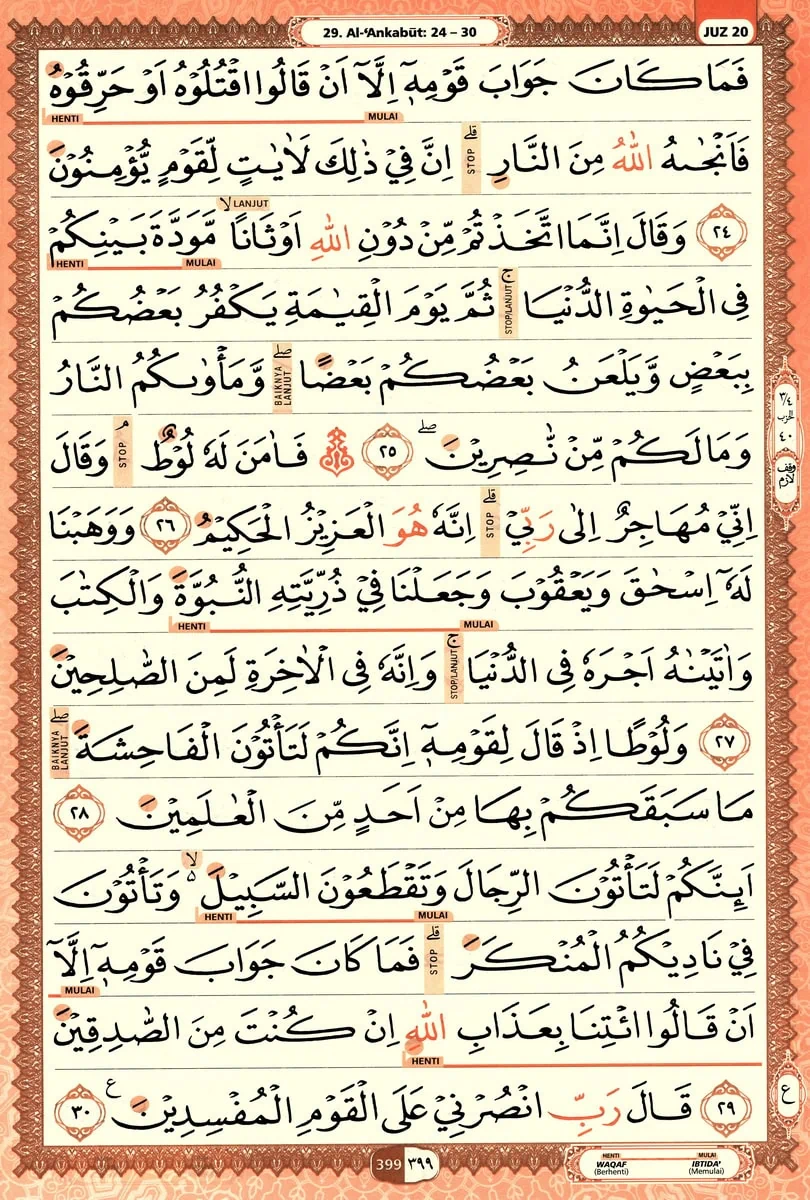 29. Al-‘Ankabūt: 24 – 30
JUZ 20
فَمَا كَانَ جَوَابَ قَوْمِهٖٓ اِلَّآ اَنْ قَالُوا اقْتُلُوْهُ اَوْ حَرِّقُوْهُ
HENTI MULAI
فَاَنْجٰىهُ اللّٰهُ مِنَ النَّارِۗ STOP اِنَّ فِيْ ذٰلِكَ لَاٰيٰتٍ لِّقَوْمٍ يُّؤْمِنُوْنَ
LANJUT
٢٤ وَقَالَ اِنَّمَا اتَّخَذْتُمْ مِّنْ دُوْنِ اللّٰهِ اَوْثَانًاۙ مَّوَدَّةَ بَيْنِكُمْ
HENTI MULAI
فِى الْحَيٰوةِ الدُّنْيَاۚ STOP/LANJUT ثُمَّ يَوْمَ الْقِيٰمَةِ يَكْفُرُ بَعْضُكُمْ
بِبَعْضٍ وَّيَلْعَنُ بَعْضُكُمْ بَعْضًاۖ BAIKNYA LANJUT وَّمَأْوٰىكُمُ النَّارُ
وَمَا لَكُمْ مِّنْ نّٰصِرِيْنَۖ ٢٥ فَاٰمَنَ لَهٗ لُوْطٌۘ STOP وَقَالَ
اِنِّيْ مُهَاجِرٌ اِلٰى رَبِّيْۗ STOP اِنَّهٗ هُوَ الْعَزِيْزُ الْحَكِيْمُ ٢٦ وَوَهَبْنَا
لَهٗٓ اِسْحٰقَ وَيَعْقُوْبَ وَجَعَلْنَا فِيْ ذُرِّيَّتِهِ النُّبُوَّةَ وَالْكِتٰبَ
HENTI MULAI
وَاٰتَيْنٰهُ اَجْرَهٗ فِى الدُّنْيَاۚ STOP/LANJUT وَاِنَّهٗ فِى الْاٰخِرَةِ لَمِنَ الصّٰلِحِيْنَ
٢٧ وَلُوْطًا اِذْ قَالَ لِقَوْمِهٖٓ اِنَّكُمْ لَتَأْتُوْنَ الْفَاحِشَةَۖ BAIKNYA LANJUT
مَا سَبَقَكُمْ بِهَا مِنْ اَحَدٍ مِّنَ الْعٰلَمِيْنَ ٢٨
اَىِٕنَّكُمْ لَتَأْتُوْنَ الرِّجَالَ وَتَقْطَعُوْنَ السَّبِيْلَ ەۙ وَتَأْتُوْنَ
HENTI MULAI
فِيْ نَادِيْكُمُ الْمُنْكَرَۗ STOP فَمَا كَانَ جَوَابَ قَوْمِهٖٓ اِلَّآ
MULAI
اَنْ قَالُوا ائْتِنَا بِعَذَابِ اللّٰهِ اِنْ كُنْتَ مِنَ الصّٰدِقِيْنَ
HENTI
٢٩ قَالَ رَبِّ انْصُرْنِيْ عَلَى الْقَوْمِ الْمُفْسِدِيْنَ ࣖ ٣٠
٣/٤
الحزب
٤٠
وقف
لازم
ع
399 ٣٩٩
HENTI MULAI
WAQAF IBTIDA’
(Berhenti) (Memulai)